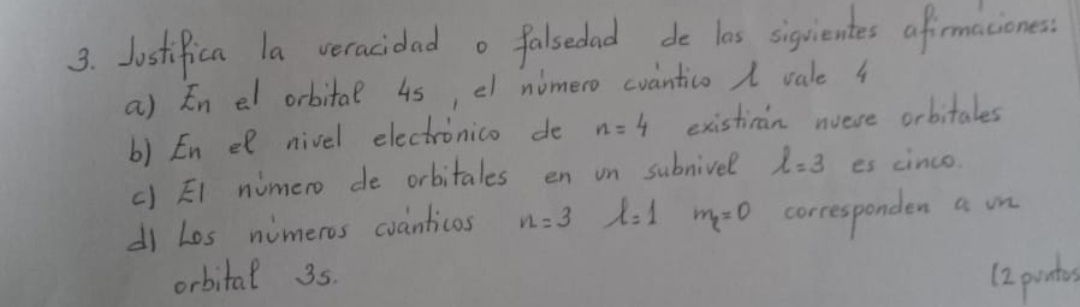 3. Justifica la veracidad o falsedad de las siguientes afirmaciones:
a) En el orbital 4s, el número cuántico l vale 4
b) En el nivel electrónico de n=4 existirán nueve orbitales
c) El número de orbitales en un subnivel l=3 es cinco.
d) Los números cuánticos n=3 l=1 mₗ=0 corresponden a un
orbital 3s.
(2 puntos